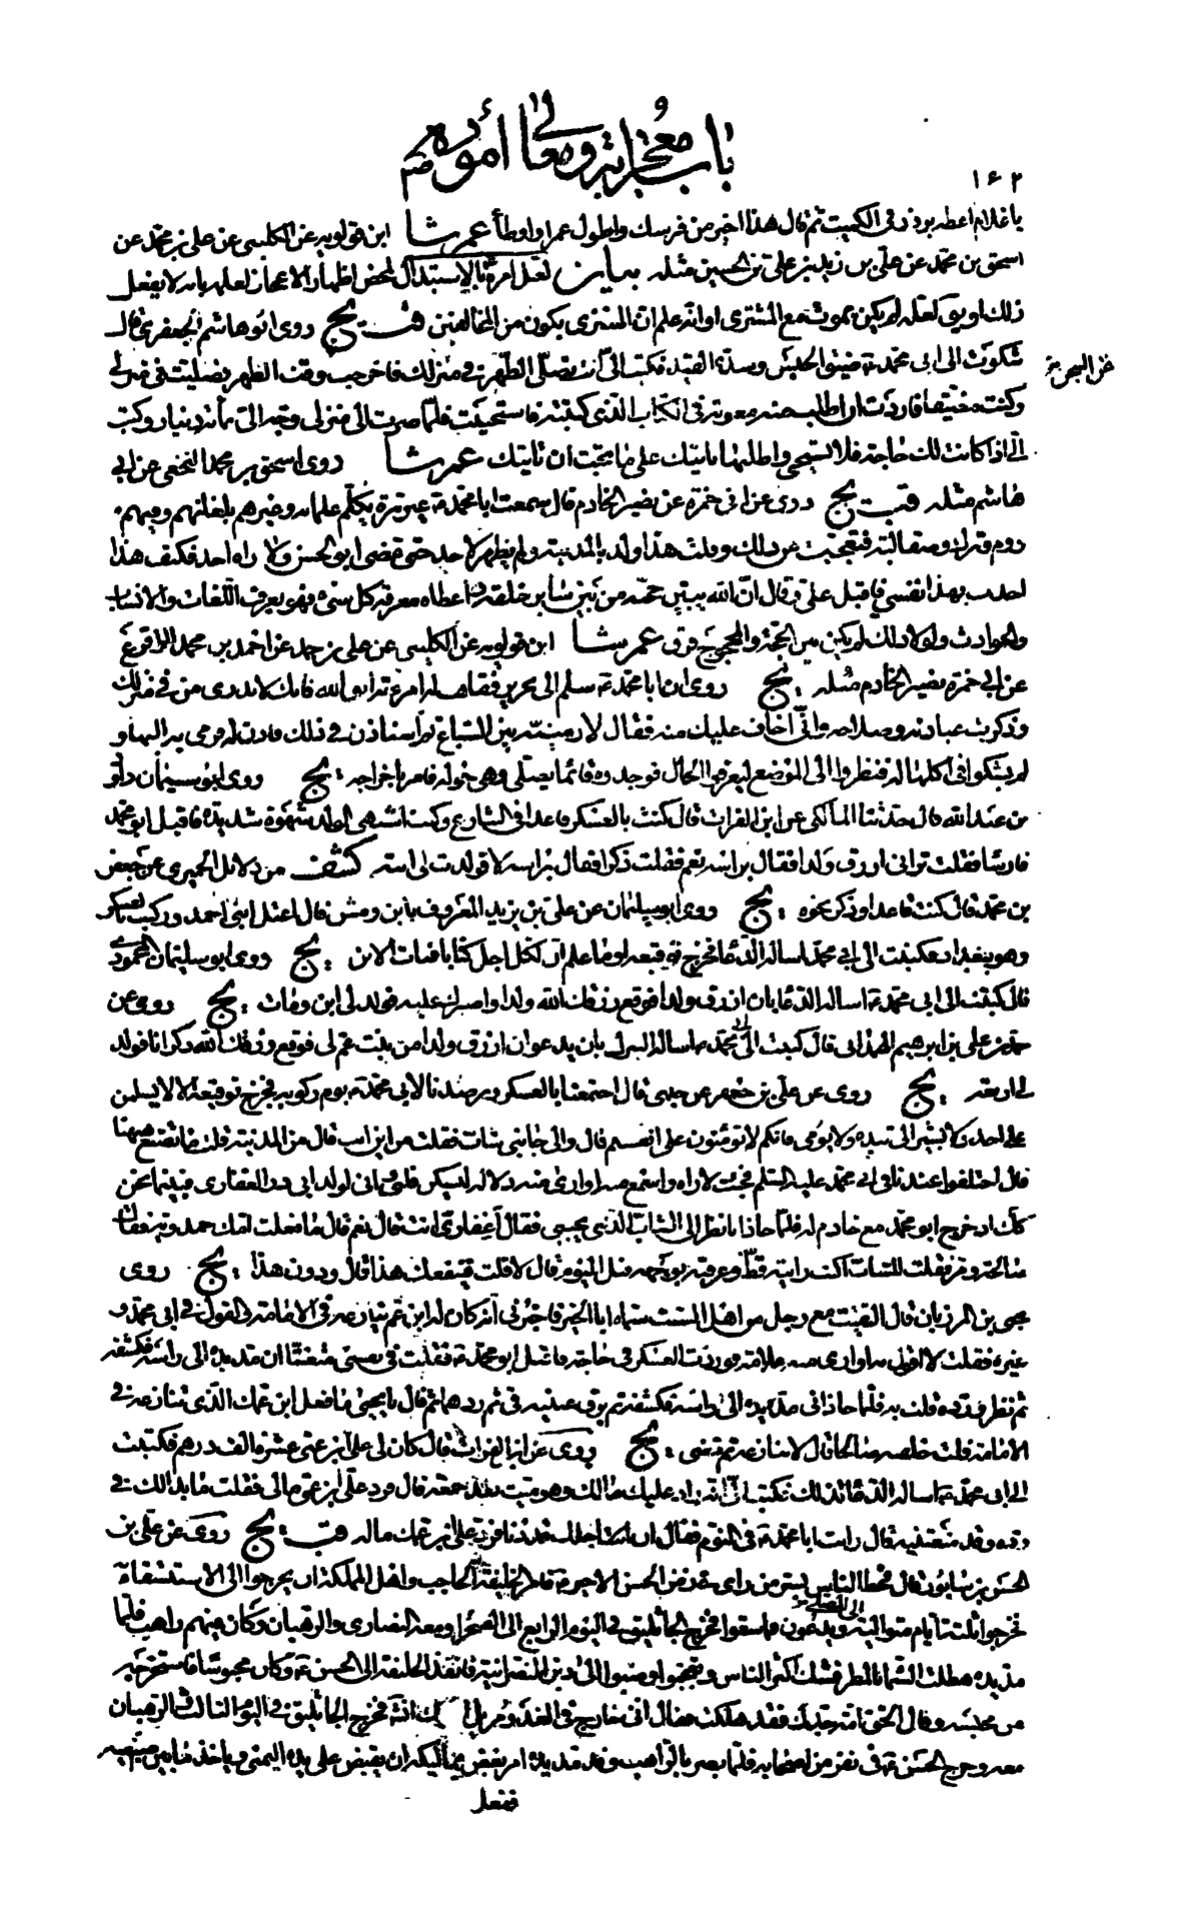 باب معجزاته ومعالي أموره
١٦٢
يا غلام اعطه برذوني الكميت ثم قال هذا اخير من فرسك واطول عمرا واوطأ عم شا ابن قولويه عن الكليني عن علي بن محمد عن
اسحق بن محمد عن علي بن زيد بن علي بن الحسين مثله بيان لعل امره بالاستبدال لمحض اظهار الاعجاز لعلمه بانه لا يفعل
ذلك او يقال لعله لم يكن يموت مع المشتري او انه علم ان المشتري يكون من المخالفين قب يج روى ابو هاشم الجعفري قال
شكوت الى ابي محمد ضيق الحبس وشدة القيد فكتب الي انت تصلي الظهر في منزلك فاخرجت وقت الظهر فصليت في منزلي
من السجن
وكنت مضيقا فاردت ان اطلب منه معونة في الكتاب الذي كتبته فاستحييت فلما صرت الى منزلي وجه الي بمائة دينار وكتب
الي اذا كانت لك حاجة فلا تستحي واطلبها تاتيك على ما تحب ان تاتيك عم شا روى اسحق بن محمد النخعي عن ابي
هاشم مثله قب يج روى عن ابي حمزة عن نصير الخادم قال سمعت ابا محمد غير مرة يكلم غلمانه وغيرهم بلغاتهم وفيهم
روم وترك وصقالبة فتعجبت من ذلك وقلت هذا ولد بالمدينة ولم يظهر لاحد حتى قضى ابو الحسن ولا راه احد فكيف هذا
احدث بهذا نفسي فاقبل علي وقال ان الله يبين حجته من بين سائر خلقه واعطاه معرفة كل شيء فهو يعرف اللغات والانساب
والحوادث ولولا ذلك لم يكن بين الحجة والمحجوج فرق عم شا ابن قولويه عن الكليني عن علي بن محمد عن احمد بن محمد الاقرع
عن ابي حمزة نصير الخادم مثله يج روى ان ابا محمد سلم الى نحرير فقالت له امرءته اتق الله فانك لا تدري من في منزلك
وذكرت عبادته وصلاحه واني اخاف عليك منه فقال لارمينه بين السباع ثم استاذن في ذلك فاذن له فرمى به اليها و
لم يشكوا في اكلها له فنظروا الى الموضع ليعرفوا الحال فوجدوه قائما يصلي وهي حوله فامر باخراجه يج روى ابو سليمان داود
بن عبد الله قال حدثنا المالكي عن ابن الفرات قال كنت بالعسكر قاعدا في الشارع وكنت اشتهي الولد شهوة شديدة فاقبل ابو محمد
فارسا فقلت تراني ارزق ولدا فقال براسه نعم فقلت ذكرا فقال براسه لا فولدت لي ابنة كشف من دلائل الحميري عن جعفر
بن محمد قال كنت قاعدا وذكر نحوه يج روى ابو سليمان عن علي بن يزيد المعروف بابن رمش قال اعتل ابني احمد وركبت بالعسكر
وهو ببغداد فكتبت الى ابي محمد اساله الدعاء فخرج توقيعه او ما علم ان لكل اجل كتابا فمات الابن يج روى ابو سليمان المحمودي
قال كتبت الى ابي محمد اساله الدعاء بان ارزق ولدا فوقع رزقك الله ولدا واصبرك عليه فولد لي ابن ومات يج روى عن
محمد بن علي بن ابراهيم الهمداني قال كتبت الى ابي محمد اساله التبرك بان يدعو ان ارزق ولدا من بنت عم لي فوقع رزقك الله ذكرانا فولد
لي اربعة يج روى عن علي بن جعفر عن حلبي قال اجتمعنا بالعسكر وترصدنا لابي محمد يوم ركوبه فخرج توقيعه الا لا يسلمن
علي احد ولا يشير الي بيده ولا يومي فانكم لا تؤمنون على انفسكم قال والى جانبي شاب فقلت من اين انت قال من المدينة قلت ما تصنع ههنا
قال اختلفوا عندنا في ابي محمد عليه السلم فجئت لاراه واسمع منه او ارى منه دلالة ليسكن قلبي واني لولد ابي ذر الغفاري فبينما نحن
كذلك اذ خرج ابو محمد مع خادم له فلما حاذانا نظر الى الشاب الذي بجنبي فقال اغفاري انت قال نعم قال ما فعلت امك حمدوية فقال
صالحة ومر فقلت للشاب اكنت رايته قط وعرفته بوجهه قبل اليوم قال لا قلت فينفعك هذا قال ودون هذا يج روى
يحيى بن المرزبان قال التقيت مع رجل من اهل السيب سيماه الخير فاخبرني انه كان له ابن عم ينازعه في الامامة والقول في ابي محمد و
غيره فقلت لا اقول به او ارى منه علامة فوردت العسكر في حاجة فاقبل ابو محمد فقلت في نفسي متعنتا ان مد يده الى راسه فكشفه
ثم نظر الي ورده قلت به فلما حاذاني مد يده الى راسه فكشفه ثم برق عينيه في ثم ردهما ثم قال يا يحيى ما فعل ابن عمك الذي تنازعه في
الامامة قلت خلفته صالحا قال لا تنازعه ثم مضى يج روى عن ابن الفرات قال كان لي على ابن عمي عشرة الف درهم فكتبت
الى ابي محمد اساله الدعاء لذلك فكتب الي انه راد عليك مالك وهو ميت بعد جمعة قال فرد علي ابن عمي مالي فقلت ما بدا لك في
رده وقد منعتنيه قال رايت ابا محمد في النوم فقال ان اجلك قد دنا فرد على ابن عمك ماله قب يج روى عن علي بن
الحسن بن سابور قال قحط الناس بسر من راى في زمن الحسن الاخير فامر الخليفة الحاجب واهل المملكة ان يخرجوا الى الاستسقاء
فخرجوا ثلثة ايام متوالية الى المصلى ويدعون فما سقوا فخرج الجاثليق في اليوم الرابع الى الصحراء ومعه النصارى والرهبان وكان فيهم راهب فلما
مد يده هطلت السماء بالمطر فشك اكثر الناس وتعجبوا وصبوا الى دين النصرانية فانفذ الخليفة الى الحسن وكان محبوسا فاستخرجه
من محبسه وقال الحق امة جدك فقد هلكت فقال اني خارج في الغد ومزيل الشك انشاء الله فخرج الجاثليق في اليوم الثالث والرهبان
معه وخرج الحسن في نفر من اصحابه فلما بصر بالراهب وقد مد يده امر بعض مماليكه ان يقبض على يده اليمنى وياخذ ما بين اصبعيه
ففعل